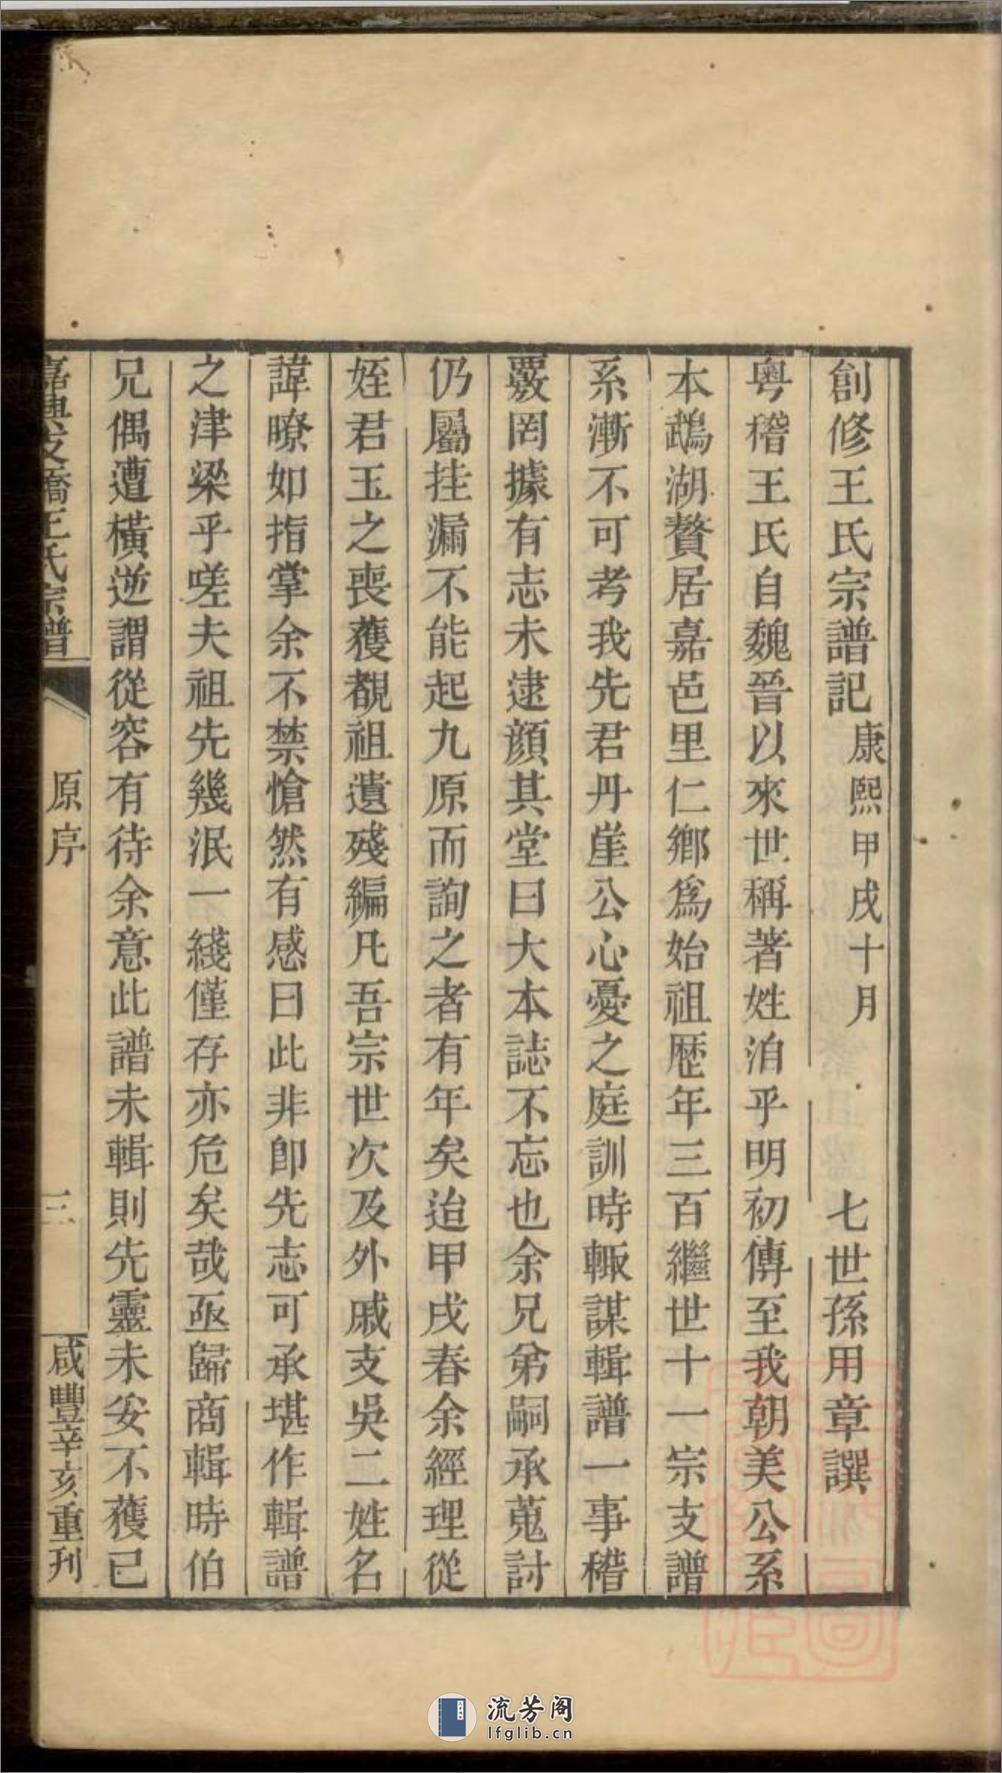 創修王氏宗譜記 康熙甲戌十月 七世孫用章譔
粵稽王氏自魏晉以來世稱著姓洎乎明初傳至我朝美公系
本鵡湖贅居嘉邑里仁鄉為始祖歷年三百繼世十一宗支譜
系漸不可考我先君丹崖公心憂之庭訓時輙謀輯譜一事稽
覈罔據有志未逮顏其堂曰大本誌不忘也余兄弟嗣承蒐討
仍屬挂漏不能起九原而詢之者有年矣迨甲戌春余經理從
姪君玉之喪獲覩祖遺殘編凡吾宗世次及外戚支吳二姓名
諱瞭如指掌余不禁愴然有感曰此非卽先志可承堪作輯譜
之津梁乎嗟夫祖先幾泯一綫僅存亦危矣哉亟歸商輯時伯
兄偶遭橫逆謂從容有待余意此譜未輯則先靈未妥不獲已
嘉興 橋王氏宗譜 原序 三 咸豐辛亥重刊
流芳阁
lfglib.cn